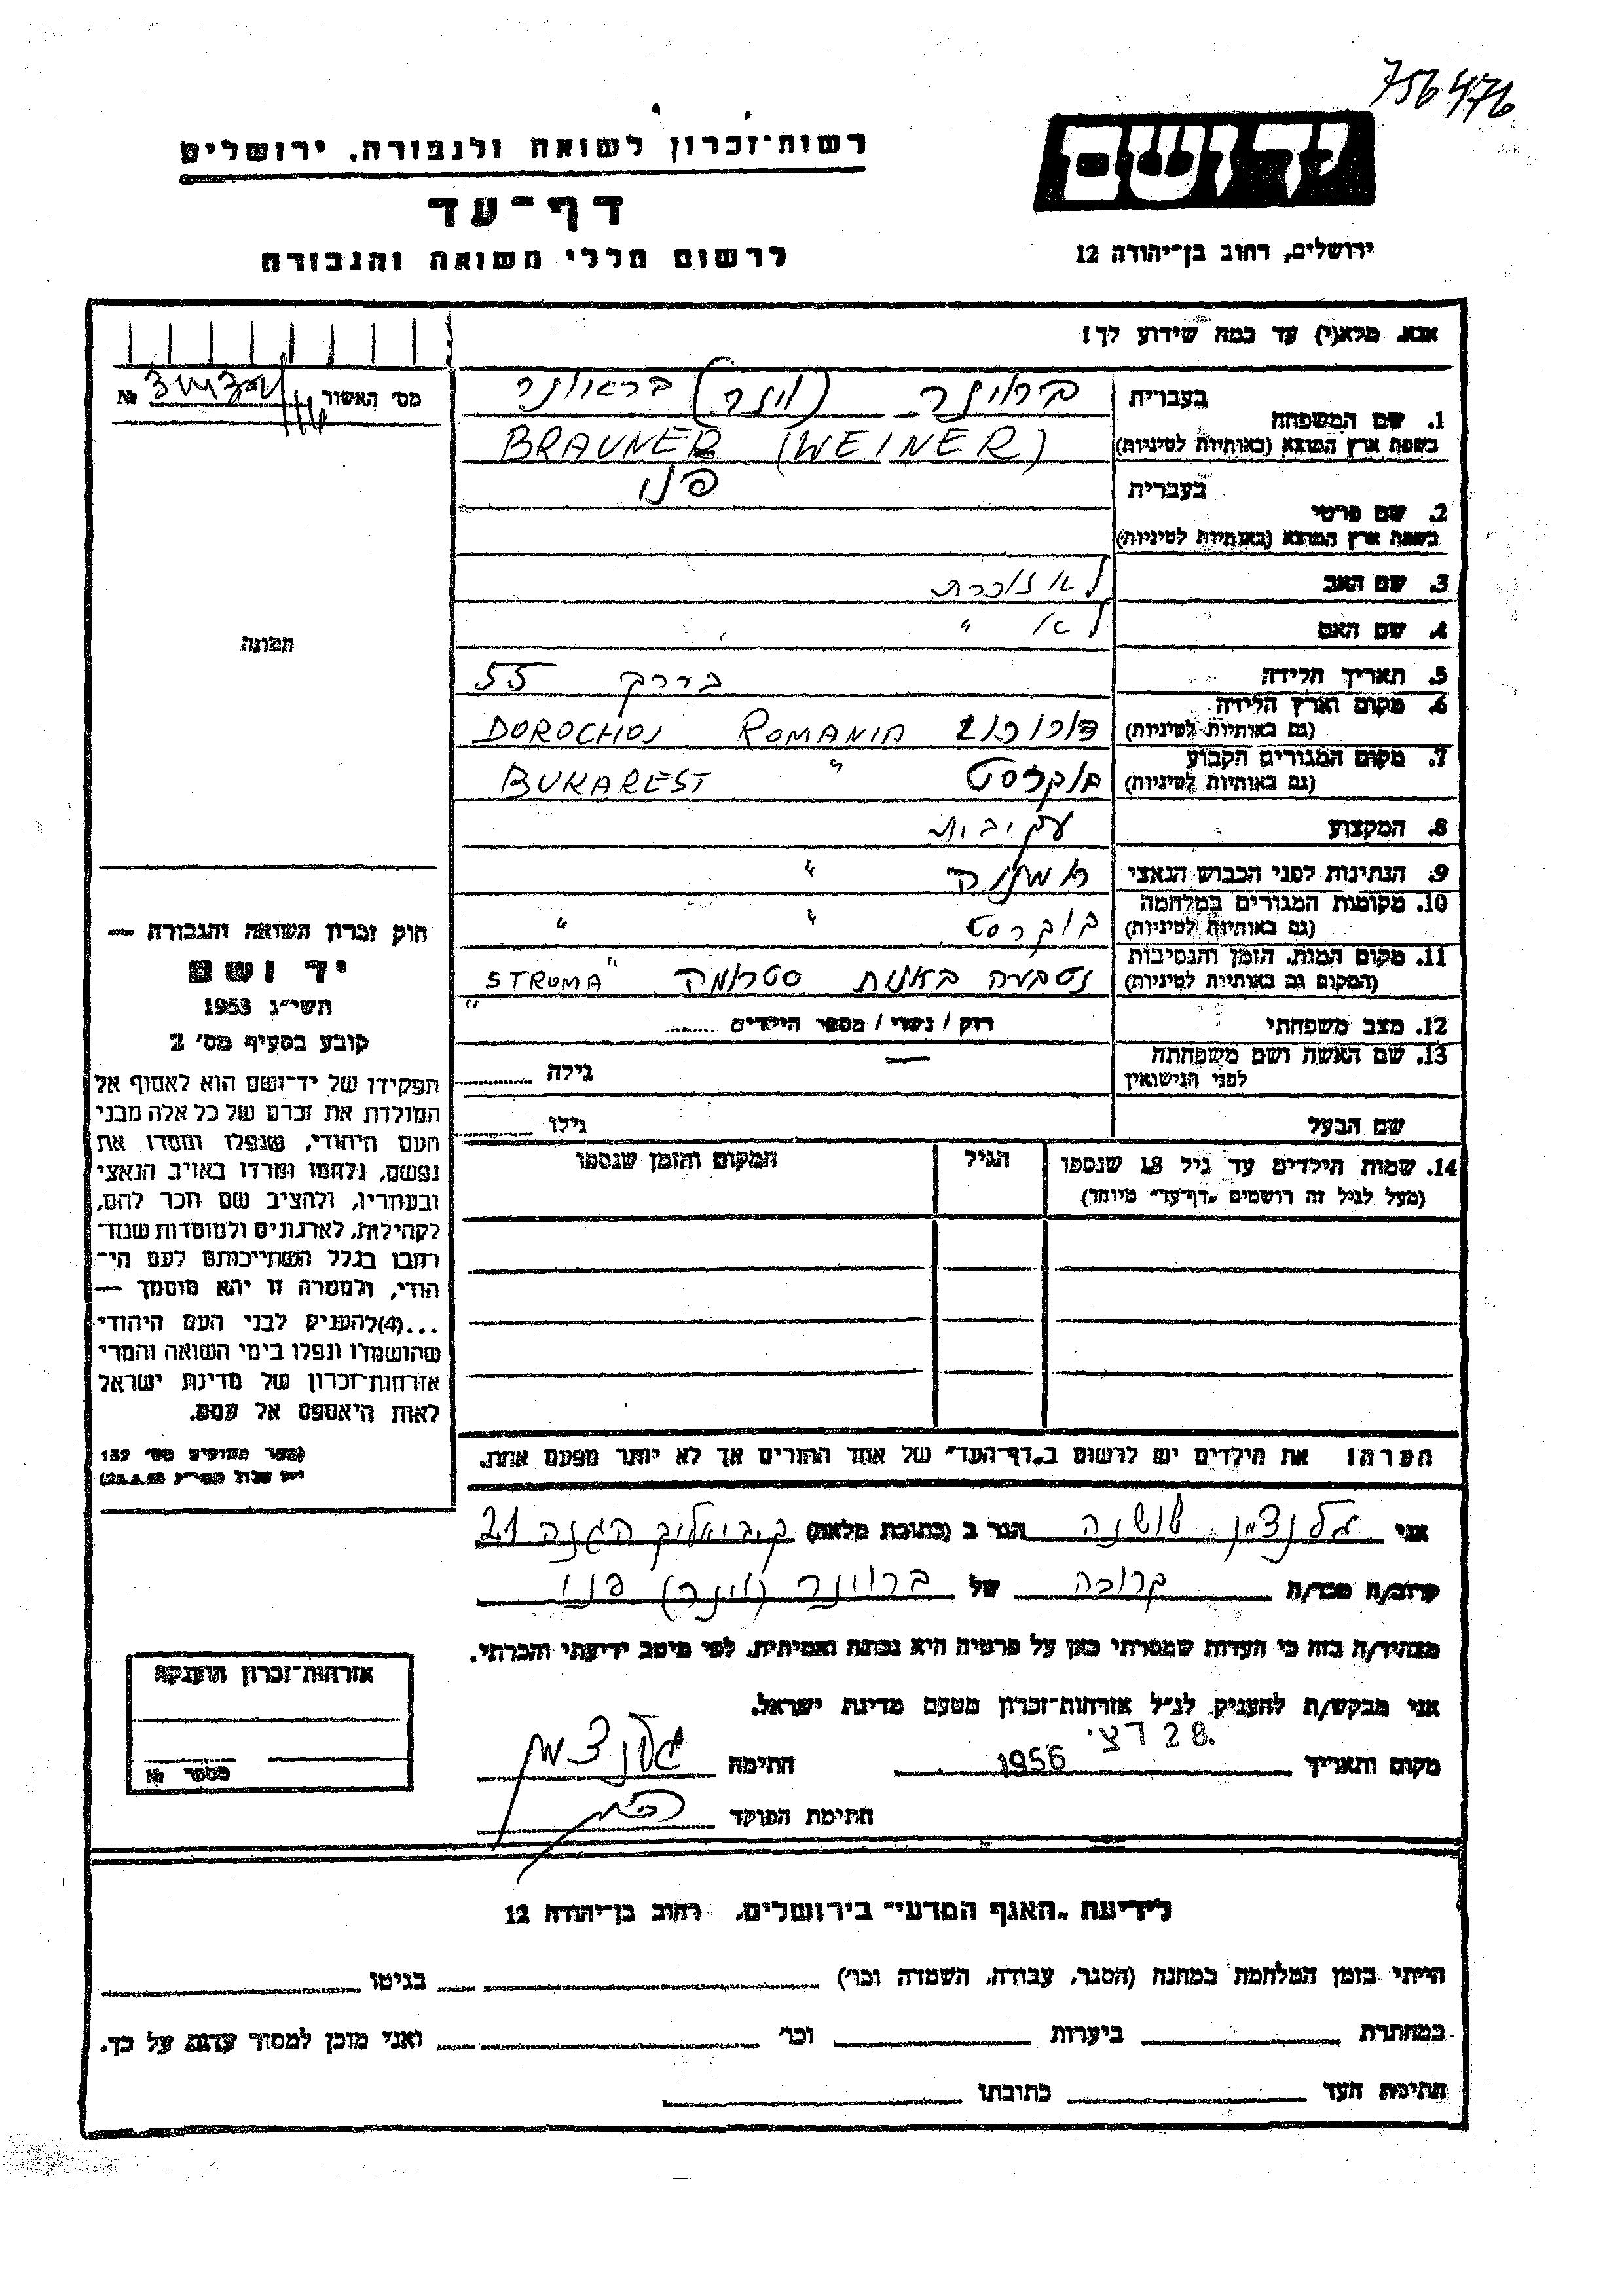 756476
רשות-זכרון לשואה ולגבורה, ירושלים
דף-עד
לרשום חללי השואה והגבורה
יד ושם
ירושלים, רחוב בן-יהודה 12
אנא, מלא(י) עד כמה שידוע לך!
מס' האשור №
תמונה
1. שם המשפחה בעברית ברוינר (וינר) בראונר
בשפת ארץ המוצא (באותיות לטיניות) BRAUNER (WEINER)
2. שם פרטי בעברית פני
בשפת ארץ המוצא (באותיות לטיניות)
3. שם האב לא זוכרת
4. שם האם לא "
5. תאריך הלידה בערך 55
6. מקום וארץ הלידה
(גם באותיות לטיניות) ROMANIA DOROCHOI
7. מקום המגורים הקבוע
(גם באותיות לטיניות) בוקרסט " BUKAREST
8. המקצוע
9. הנתינות לפני הכבוש הנאצי "
10. מקומות המגורים במלחמה
(גם באותיות לטיניות) בוקרסט " "
11. מקום המות, הזמן והנסיבות
(המקום גם באותיות לטיניות) נטבעה באנית סטרומה "STRUMA"
12. מצב משפחתי רוק / נשוי / מספר הילדים
13. שם האשה ושם משפחתה
לפני הנישואין — גילה
שם הבעל גילו
14. שמות הילדים עד גיל 18 שנספו הגיל המקום והזמן שנספו
(מעל לגיל זה רושמים "דף-עד" מיוחד)
הערה: את הילדים יש לרשום ב"דף-העד" של אחד ההורים אך לא יותר מפעם אחת.
חוק זכרון השואה והגבורה —
יד ושם
תשי"ג 1953
קובע בסעיף מס' 2
תפקידו של יד-ושם הוא לאסוף אל
המולדת את זכרם של כל אלה מבני
העם היהודי, שנפלו ומסרו את
נפשם, נלחמו ומרדו באויב הנאצי
ובעוזריו, ולהציב שם וזכר להם,
לקהילות, לארגונים ולמוסדות שנח-
רבו בגלל השתייכותם לעם הי-
הודי, ולמטרה זו יהא מוסמך —
...(4) להעניק לבני העם היהודי
שהושמדו ונפלו בימי השואה והמרי
אזרחות-זכרון של מדינת ישראל
לאות היאספם אל עמם.
(ספר החוקים מס' 132
אני גלנצמן שושנה הגר ב (כתובת מלאה) ק. ביאליק הגנה 21
קרוב/ה מכר/ה קרובה של ברוינר (וינר) פני
מצהיר/ה בזה כי העדות שמסרתי כאן על פרטיה היא נכונה ואמיתית, לפי מיטב ידיעתי והכרתי.
אני מבקש/ת להעניק לנ"ל אזרחות-זכרון מטעם מדינת ישראל.
מקום ותאריך 28 דצ' 1956 חתימה גלנצמן
חתימת הפוקד
אזרחות-זכרון הוענקה
מספר №
לידיעת "האגף המדעי" בירושלים, רחוב בן-יהודה 12
הייתי בזמן המלחמה במחנה (הסגר, עבודה, השמדה וכו') בגיטו
במחתרת ביערות וכו' ואני מוכן למסור עדות על כך.
חתימת העד כתובתו